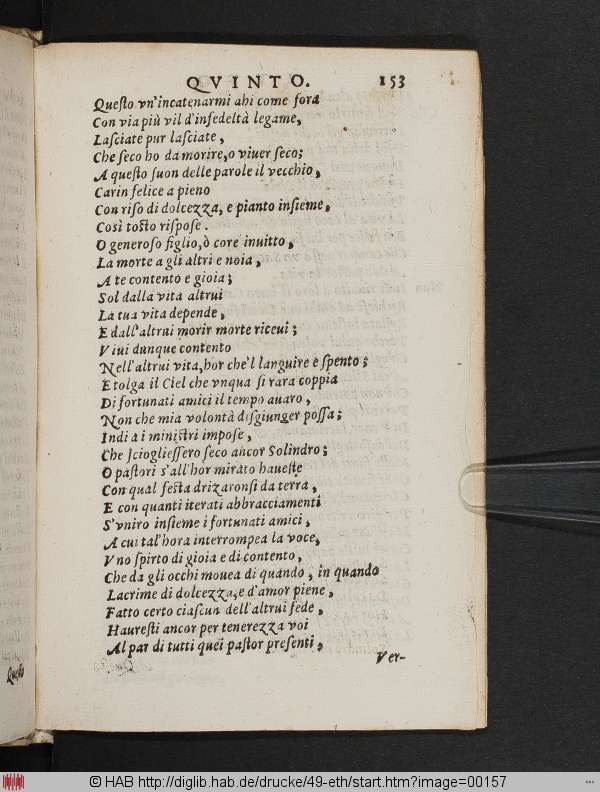 QVINTO. 153
Queſto vn'incatenarmi ahi come fora
Con via più vil d'infedeltà legame,
Laſciate pur laſciate,
Che ſeco ho da morire, o viuer ſeco;
A queſto ſuon delle parole il vecchio,
Carin felice a pieno
Con riſo di dolcezza, e pianto inſieme,
Così toſto riſpoſe.
O generoſo figlio, ò core inuitto,
La morte a gli altri e noia,
A te contento e gioia;
Sol dalla vita altrui
La tua vita depende,
E dall'altrui morir morte riceui;
Viui dunque contento
Nell'altrui vita, hor che'l languire e ſpento;
E tolga il Ciel che vnqua ſi rara coppia
Di fortunati amici il tempo auaro,
Non che mia volontà diſgiunger poſſa;
Indi a i miniſtri impoſe,
Che ſcioglieſſero ſeco ancor Solindro;
O paſtori s'all'hor mirato haueſte
Con qual feſta drizaronſi da terra,
E con quanti iterati abbracciamenti
S'vniro inſieme i fortunati amici,
A cui tal'hora interrompea la voce,
Vno ſpirto di gioia e di contento,
Che da gli occhi mouea di quando, in quando
Lacrime di dolcezza, e d'amor piene,
Fatto certo ciaſcun dell'altrui fede,
Haureſti ancor per tenerezza voi
Al par di tutti quei paſtor preſenti,
Ver-
Queſto
© HAB http://diglib.hab.de/drucke/49-eth/start.htm?image=00157